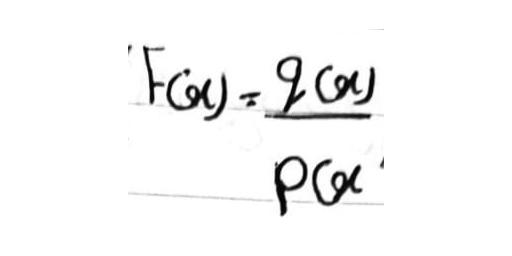 F(x) = q(x)
p(x